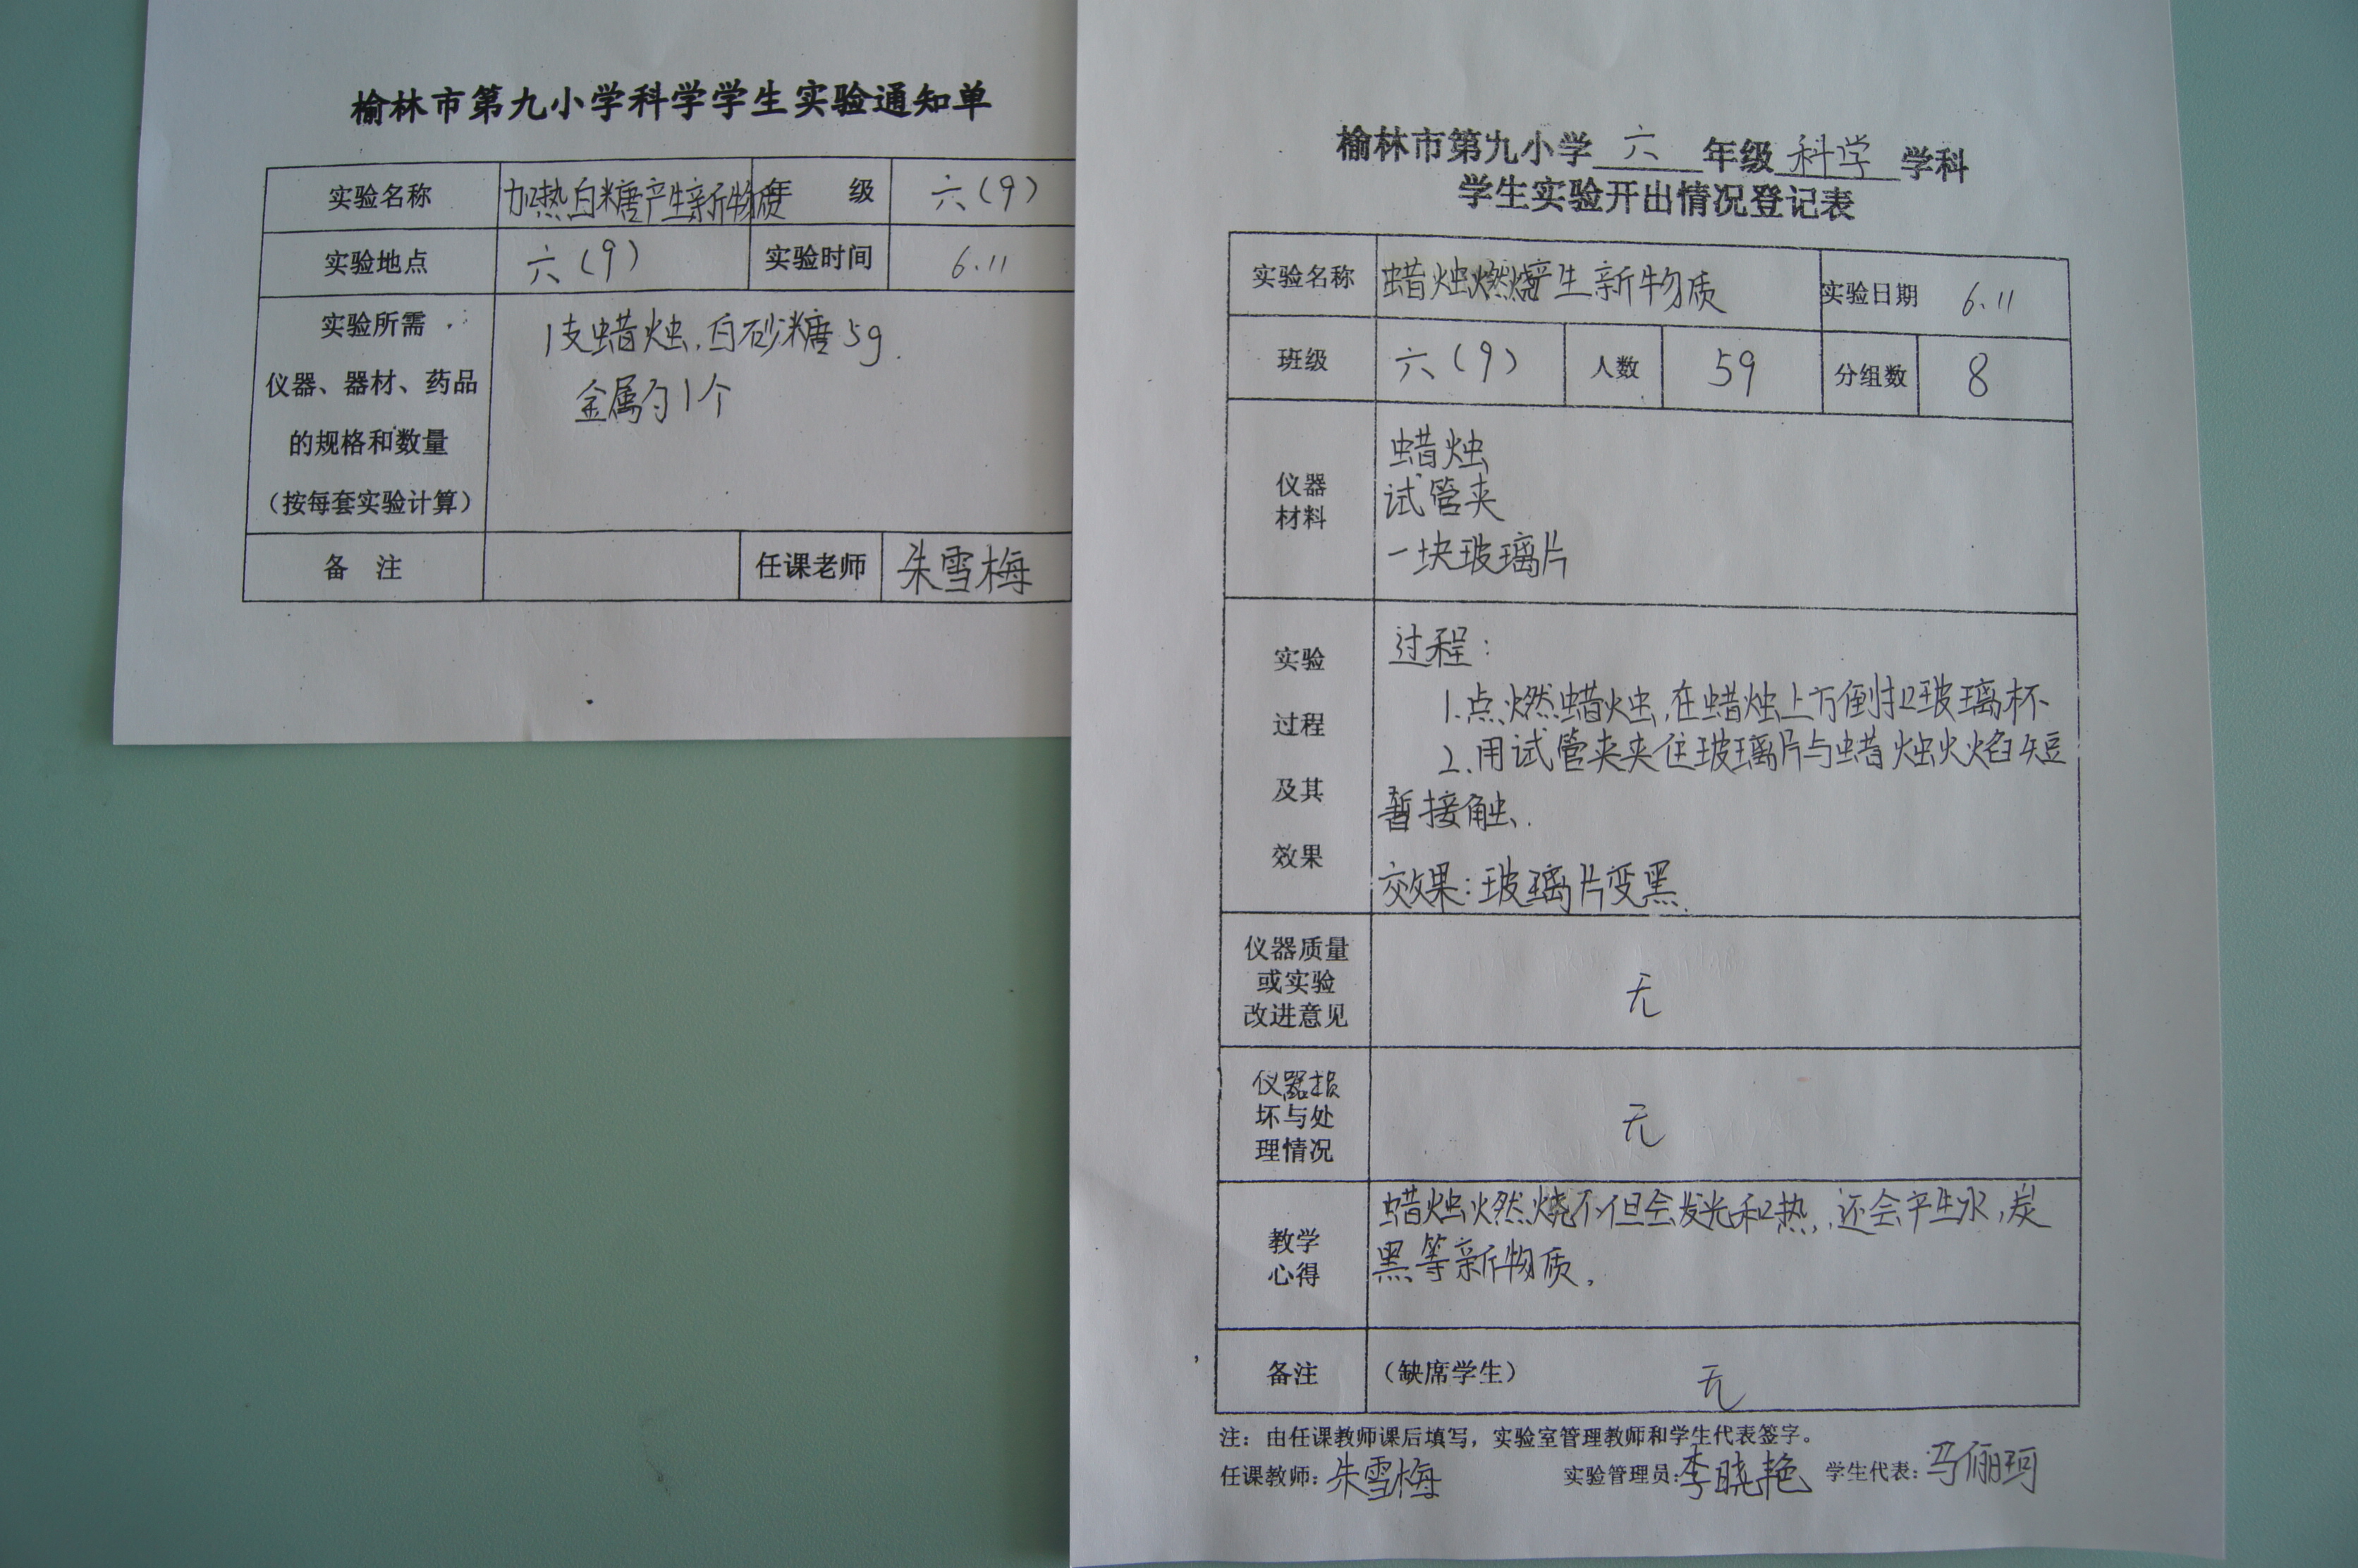 榆林市第九小学科学学生实验通知单
实验名称 加热白糖产生新物质 年 级 六(9)
实验地点 六(9) 实验时间 6.11
实验所需
仪器、器材、药品
的规格和数量
(按每套实验计算)
1支蜡烛,白砂糖5g.
金属勺1个
备 注 任课老师 朱雪梅
榆林市第九小学 六 年级 科学 学科
学生实验开出情况登记表
实验名称 蜡烛燃烧产生新物质 实验日期 6.11
班级 六(9) 人数 59 分组数 8
仪器
材料
蜡烛
试管夹
一块玻璃片
实验
过程
及其
效果
过程:
1.点燃蜡烛,在蜡烛上方倒扣玻璃杯
2.用试管夹夹住玻璃片与蜡烛火焰短
暂接触.
效果:玻璃片变黑.
仪器质量
或实验
改进意见
无
仪器损
坏与处
理情况
无
教学
心得
蜡烛燃烧不但会发光和热,还会产生水,炭
黑等新物质.
备注 (缺席学生) 无
注:由任课教师课后填写,实验室管理教师和学生代表签字。
任课教师:朱雪梅 实验管理员:李晓艳 学生代表:马俪珂